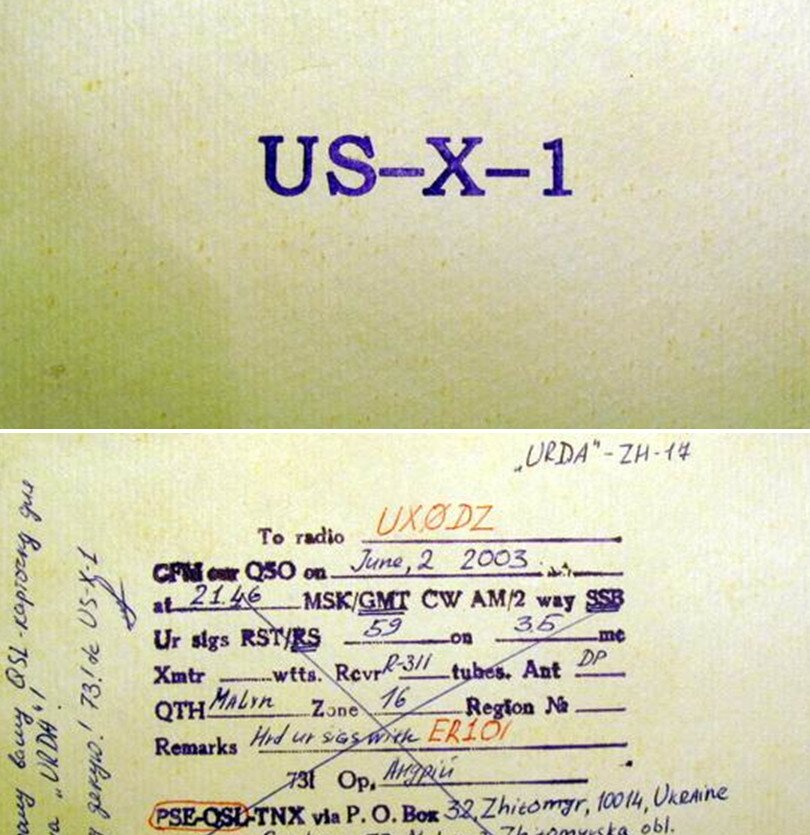 US-X-1
„URDA“-ZH-17
To radio UXØDZ
CFM our QSO on June, 2 2003
at 21.46 MSK/GMT CW AM/2 way SSB
Ur sigs RST/RS 59 on 3.5 mc
Xmtr wtts. Rcvr R-311 tubes. Ant DP
QTH Malyn Zone 16 Region №
Remarks Hrd ur sigs with ER1OI
73! Op, Андрій
PSE-QSL-TNX via P. O. Box 32, Zhitomyr, 10014, Ukraine
Zhitomyrska obl.
вашу QSL-карточку для
"URDA"!
дякую! 73! de US-X-1